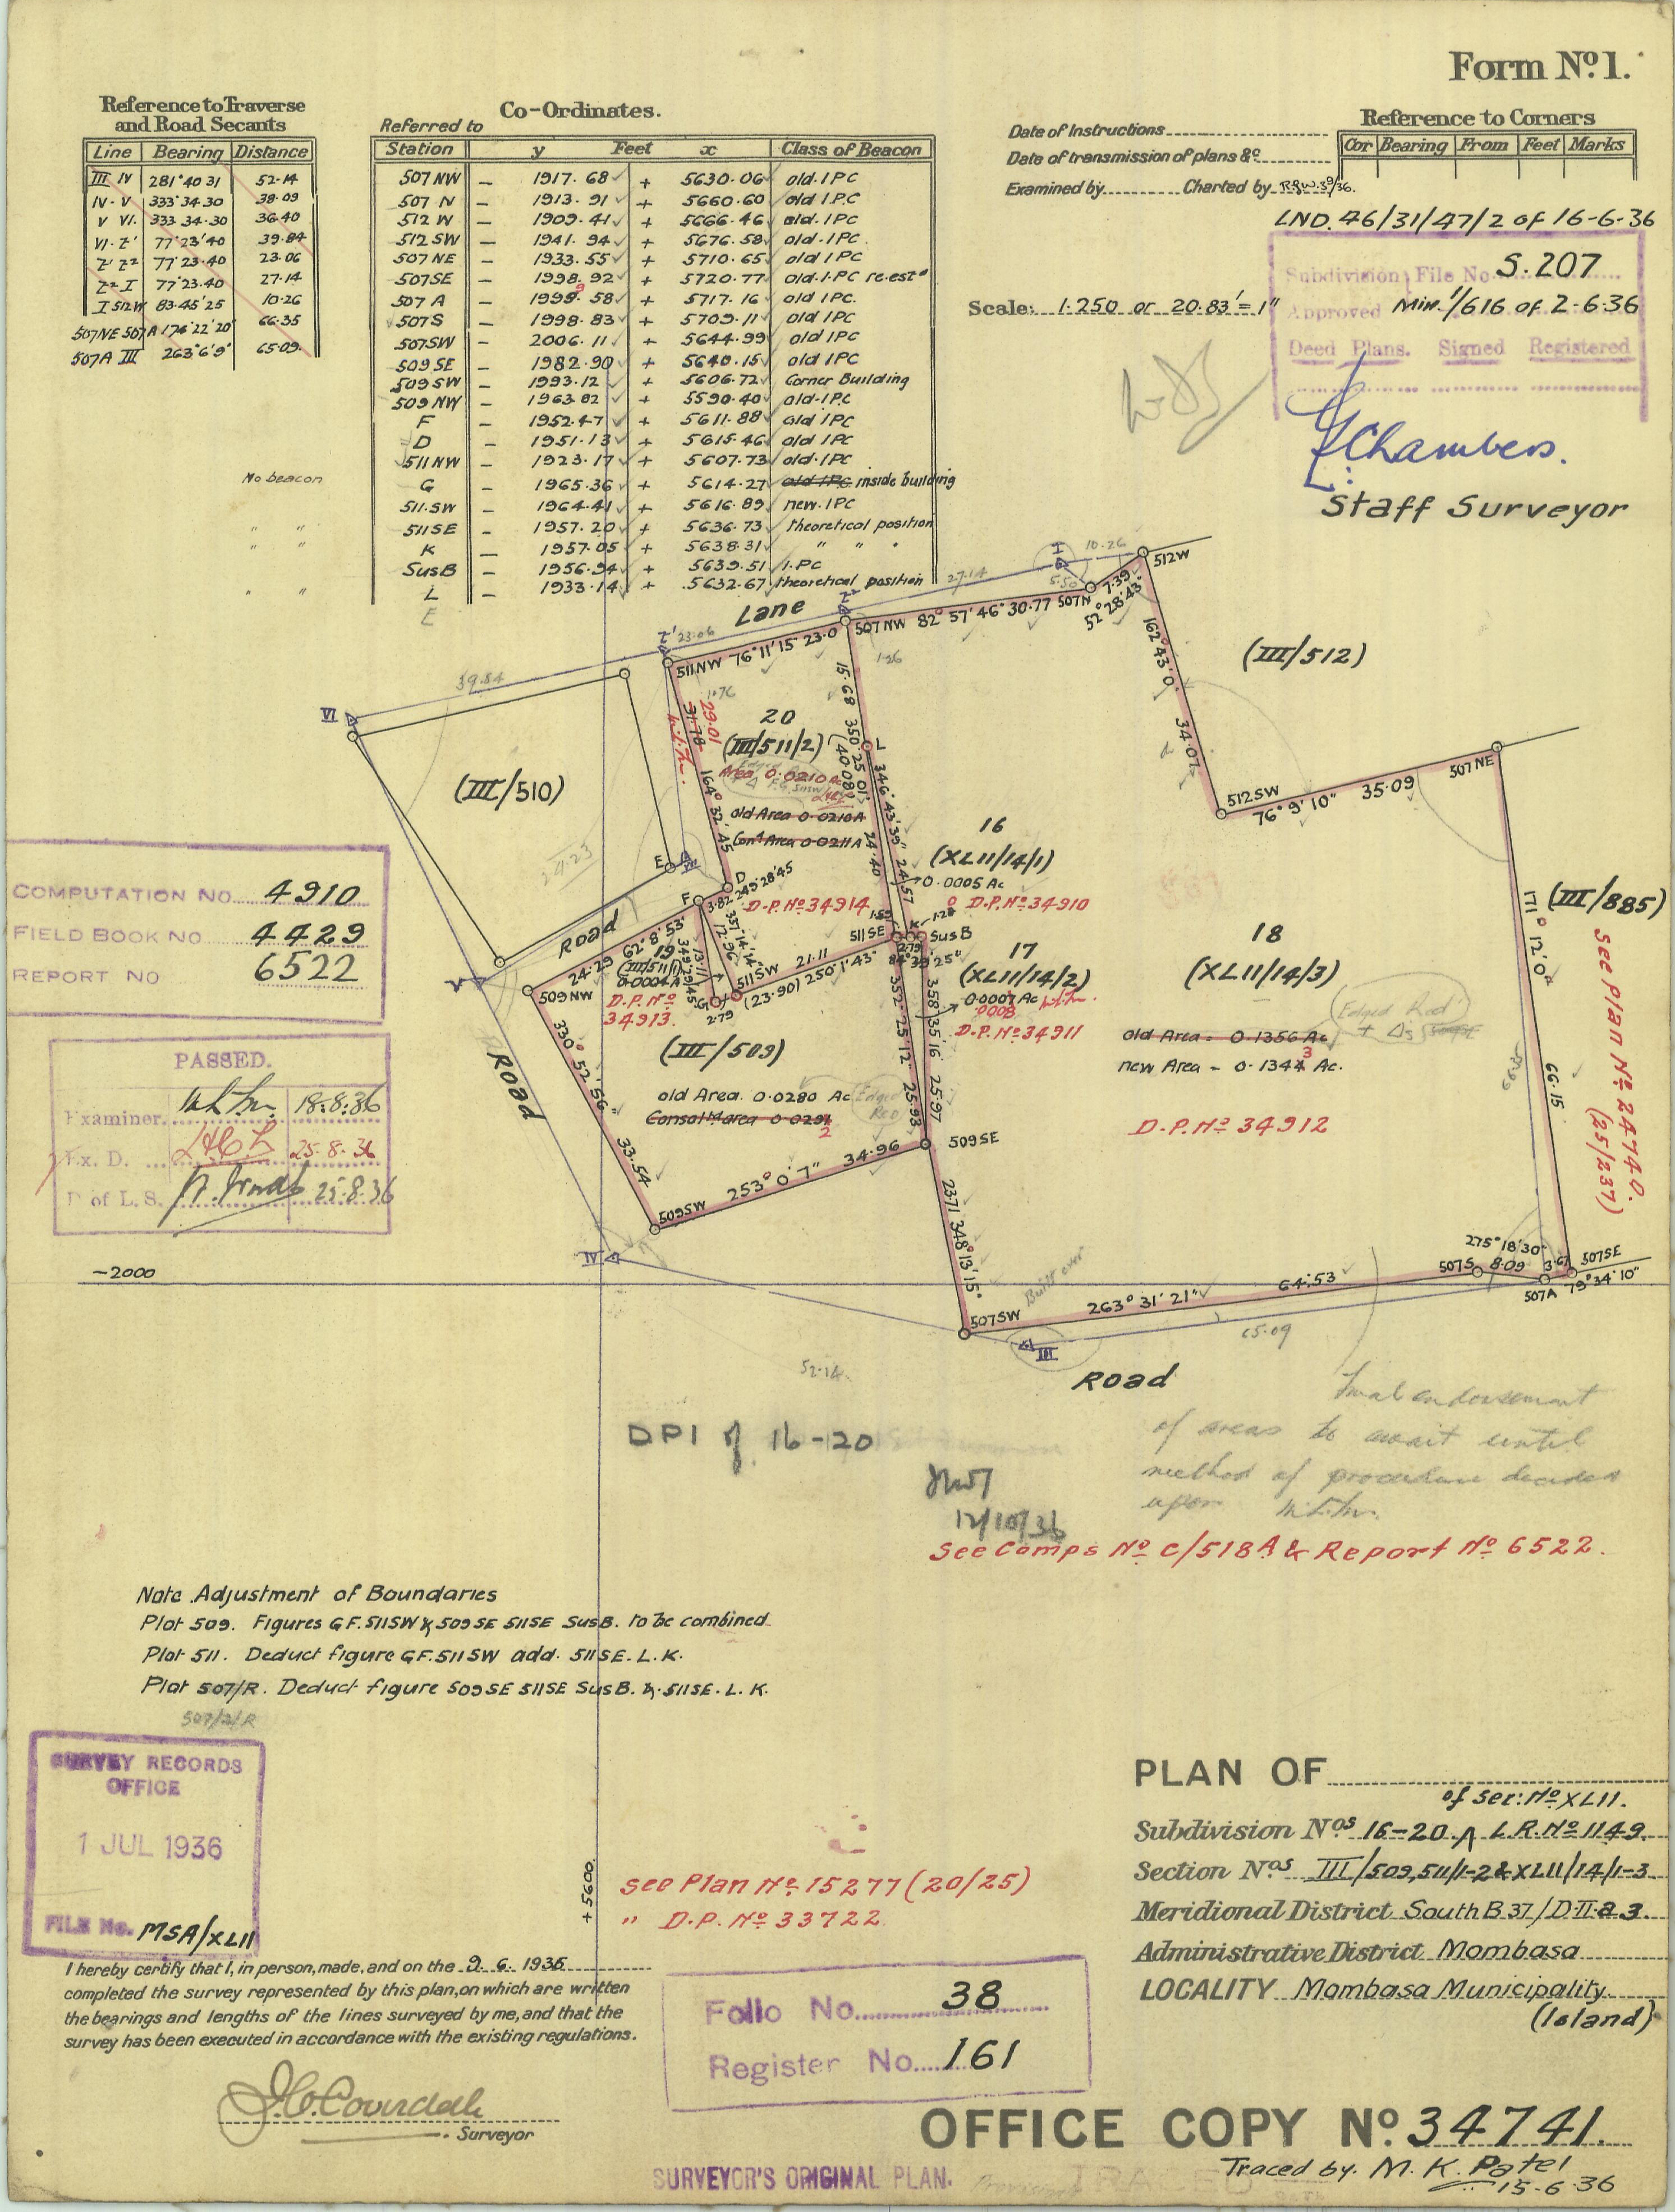 Form No. 1.
Reference to Traverse
and Road Secants
Line Bearing Distance
III IV 281°40 31 52.14
IV-V 333.34.30 38.09
V VI. 333 34.30 36.40
VI. Z' 77°23'40 39.84
Z' Z² 77°23.40 23.06
Z²-I 77°23.40 27.14
I 512W 83.45'25 10.26
507NE 507A 174°22'20" 66.35
507A III 263°6'9" 65.09.
Co-Ordinates.
Referred to
Station y Feet x Class of Beacon
507 NW – 1917.68 + 5630.06 old.IPC
507 N – 1913.91 + 5660.60 old I.P.C
512 W – 1909.41 + 5666.46 old.IPC
512 SW – 1941.94 + 5676.58 old.IPC.
507 NE – 1933.55 + 5710.65 old IPC
507SE – 1998.92 + 5720.77 old.I.PC re.est"
507 A – 1999.58 + 5717.16 old IPC.
507S – 1998.83 + 5709.11 old IPC
507SW – 2006.11 + 5644.99 old IPC
509 SE – 1982.90 + 5640.15 old IPC
509 SW – 1993.12 + 5606.72 Corner Building
509 NW – 1963.82 + 5590.40 old.IPC
F – 1952.47 + 5611.88 old IPC
D – 1951.13 + 5615.46 old IPC
511 NW – 1923.17 + 5607.73 old.IPC
No beacon G – 1965.36 + 5614.27 old IPC inside building
511.SW – 1964.41 + 5616.89 new.IPC
" " 511SE – 1957.20 + 5636.73 theoretical position
" " K – 1957.05 + 5638.31 " "
SusB – 1956.94 + 5639.51 I.PC
" " L – 1933.14 + 5632.67 theoretical position
E
Date of Instructions
Date of transmission of plans &c
Examined by Charted by
Reference to Corners
Cor Bearing From Feet Marks
LND. 46/31/47/2 of 16-6-36
Subdivision File No. S.207
Approved Min. 1/616 of 2-6-36
Deed Plans. Signed Registered
Scale: 1.250 or 20.83' = 1"
Chambers.
Staff Surveyor
Lane
I 10.26
512W
27.14
5.50
7.39
52°28'43"
507N
507NW 82°57'46" 30.77
Z² Z' 23.06
511NW 76°11'15" 23.0
39.84
VI
(III/510)
(III/512)
162°43'0"
34.07
512SW
76°9'10" 35.09
507NE
1.26
1.76
15.68 350°25'01"
(40.08)
24.40
L
346°43'39" 24.57
29.01
31.78
164°32'45
20
(III/511/2)
Area 0.0210 Ac
old Area 0.0210A
Con'd Area 0.0211A
16
(XLII/14/1)
0.0005 Ac
D.P. No 34910
D.P. No 34914
1.59 1.28
511SE K SusB
2.79
84°39'25"
24.23
E
D
F
3.82 249°28'45
Road
24.29 62°8'53"
19
(III/511/1)
0.0004A
D.P. No
34913.
349°29'45"
13.11
337°14'14"
12.96
511SW
G
2.79
21.11
(23.90) 250°1'43"
17
(XLII/14/2)
0.0007 Ac
.0008
D.P. No 34911
18
(XLII/14/3)
Edged Red
old Area = 0.1356 Ac
new Area – 0.1344 Ac.
3
D.P. No 34912
(III/885)
171°12'0"
66.15
See Plan No 24740.
(25/237)
V
509NW
Road
330°52'56"
33.54
(III/509)
old Area. 0.0280 Ac
Edged
Red
Consol'd area 0.0291
2
352°25'12" 25.93
358°35'16 25.97
509SE
509SW 253°0'7" 34.96
IV
23.71 348°13'15"
–2000
Built over
507SW 263°31'21" 64.53
507S 8.09 3.67 507SE
275°18'30"
507A 79°34'10"
65.09
III
52.14
Road
COMPUTATION NO. 4910
FIELD BOOK NO 4429
REPORT NO 6522
PASSED.
Examiner. 18.8.36
Ex. D. 25-8-36
D of L.S. 25.8.36
DPI of 16-20
12/10/36
Final endorsement
of areas to await until
method of procedure decided
upon
See Comps No C/518A & Report No 6522.
Note Adjustment of Boundaries
Plot 509. Figures G F. 511SW & 509SE 511SE SusB. to be combined
Plot 511. Deduct figure G F. 511SW add. 511SE. L. K.
Plot 507/R. Deduct figure 509SE 511SE SusB. & 511SE. L. K.
507/2/R
SURVEY RECORDS
OFFICE
1 JUL 1936
FILE No. MSA/XLII
+5600
See Plan No. 15277 (20/25)
" D.P. No 33722
PLAN OF
of Sec: No XLII.
Subdivision Nos 16–20. A L.R. No 1149.
Section Nos III/509,511/1-2 & XLII/14/1-3
Meridional District South B 37/D-II-a 3.
Administrative District Mombasa
LOCALITY Mombasa Municipality
(Island)
I hereby certify that I, in person, made, and on the 9. 6. 1936
completed the survey represented by this plan, on which are written
the bearings and lengths of the lines surveyed by me, and that the
survey has been executed in accordance with the existing regulations.
J.C. Coverdale
Surveyor
Folio No. 38
Register No. 161
OFFICE COPY No. 34741.
SURVEYOR'S ORIGINAL PLAN.
Traced by. M. K. Patel
15-6-36